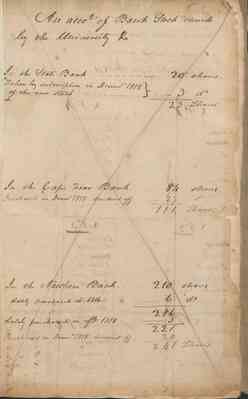 An acct of Bank Stock owned
by the University &c
In the State Bank 20 shares
Taken by subscription in Decemr 1818
of the new stock 3 do
23 Shares
In the Cape Fear Bank 84 shares
Purchased in Decr 1818 27
111 Shares
In the Newbern Bank 210 shares
6 do
216
Lately purchased in 1818 5
221
Purchased in Decemr 1818 20
241 Shares